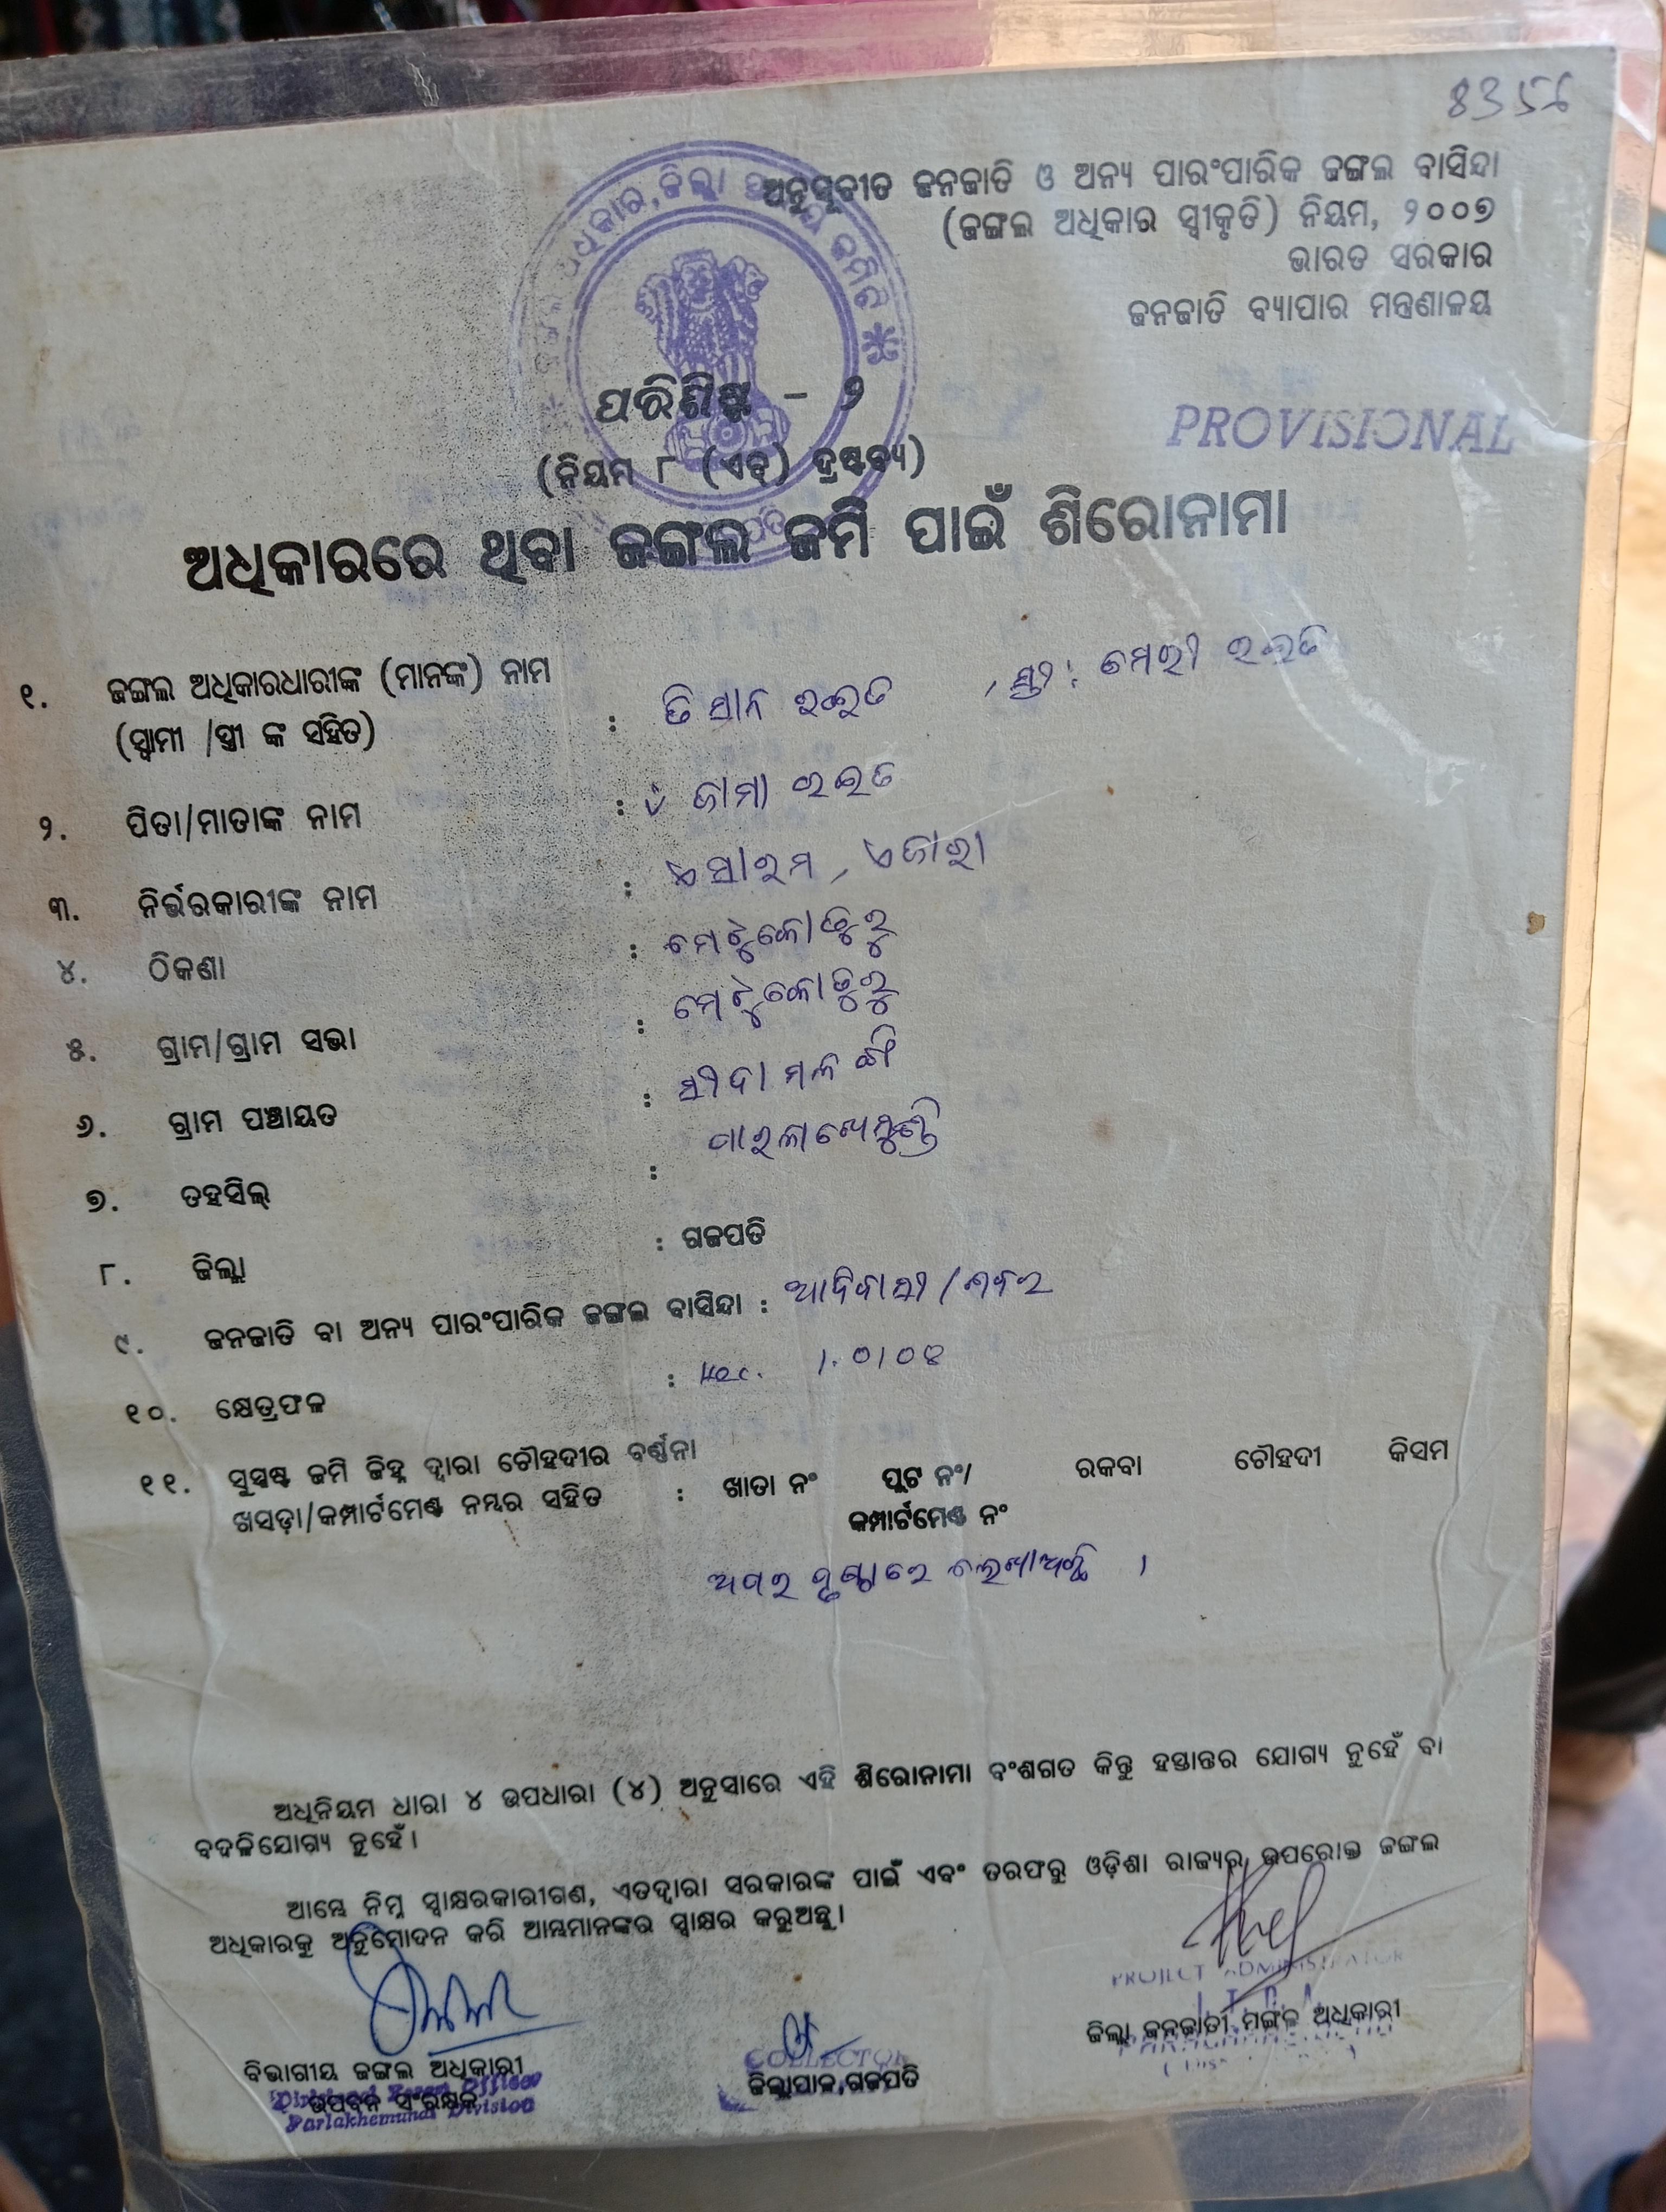 ଅନୁସୂଚୀତ ଜନଜାତି ଓ ଅନ୍ୟ ପାରଂପାରିକ ଜଙ୍ଗଲ ବାସିନ୍ଦା
(ଜଙ୍ଗଲ ଅଧିକାର ସ୍ୱୀକୃତି) ନିୟମ, ୨୦୦୭
ଭାରତ ସରକାର
ଜନଜାତି ବ୍ୟାପାର ମନ୍ତ୍ରଣାଳୟ
ପରିଶିଷ୍ଟ - ୨
PROVISIONAL
(ନିୟମ ୮ (ଏଚ୍) ଦ୍ରଷ୍ଟବ୍ୟ)
ଅଧିକାରରେ ଥିବା ଜଙ୍ଗଲ ଜମି ପାଇଁ ଶିରୋନାମା
୧. ଜଙ୍ଗଲ ଅଧିକାରଧାରୀଙ୍କ (ମାନଙ୍କ) ନାମ
(ସ୍ୱାମୀ /ସ୍ତ୍ରୀ ଙ୍କ ସହିତ) : ରଇତ , ସ୍ତ୍ରୀ: ମେରୀ ରଇତ
୨. ପିତା/ମାତାଙ୍କ ନାମ : ଜାମା ରଇତ
୩. ନିର୍ଭରକାରୀଙ୍କ ନାମ :
୪. ଠିକଣା :
୫. ଗ୍ରାମ/ଗ୍ରାମ ସଭା :
୬. ଗ୍ରାମ ପଞ୍ଚାୟତ :
୭. ତହସିଲ୍ : ପାରଳାଖେମୁଣ୍ଡି
୮. ଜିଲ୍ଲା : ଗଜପତି
୯. ଜନଜାତି ବା ଅନ୍ୟ ପାରଂପାରିକ ଜଙ୍ଗଲ ବାସିନ୍ଦା : ଆଦିବାସୀ / ଶବର
୧୦. କ୍ଷେତ୍ରଫଳ : Hec. 1.0108
୧୧. ସୁସ୍ପଷ୍ଟ ଜମି ଚିହ୍ନ ଦ୍ୱାରା ଚୌହଦୀର ବର୍ଣ୍ଣନା
ଖସଡ଼ା/କମ୍ପାର୍ଟମେଣ୍ଟ ନମ୍ବର ସହିତ : ଖାତା ନଂ ପ୍ଲଟ ନଂ/ ରକବା ଚୌହଦୀ କିସମ
କମ୍ପାର୍ଟମେଣ୍ଟ ନଂ
ଅପର ପୃଷ୍ଠାରେ ଲେଖାଅଛି ।
ଅଧିନିୟମ ଧାରା ୪ ଉପଧାରା (୪) ଅନୁସାରେ ଏହି ଶିରୋନାମା ବଂଶଗତ କିନ୍ତୁ ହସ୍ତାନ୍ତର ଯୋଗ୍ୟ ନୁହେଁ ବା
ବଦଳିଯୋଗ୍ୟ ନୁହେଁ।
ଆମ୍ଭେ ନିମ୍ନ ସ୍ୱାକ୍ଷରକାରୀଗଣ, ଏତଦ୍ୱାରା ସରକାରଙ୍କ ପାଇଁ ଏବଂ ତରଫରୁ ଓଡ଼ିଶା ରାଜ୍ୟର ଉପରୋକ୍ତ ଜଙ୍ଗଲ
ଅଧିକାରକୁ ଅନୁମୋଦନ କରି ଆମ୍ଭମାନଙ୍କର ସ୍ୱାକ୍ଷର କରୁଅଛୁ।
PROJECT ADMINISTRATOR
ଜିଲ୍ଲା ଜନଜାତୀ ମଙ୍ଗଳ ଅଧିକାରୀ
ବିଭାଗୀୟ ଜଙ୍ଗଲ ଅଧିକାରୀ
Divisional Forest Officer
ଉପବନ ସଂରକ୍ଷକ
Parlakhemundi Division
COLLECTOR
ଜିଲ୍ଲାପାଳ,ଗଜପତି